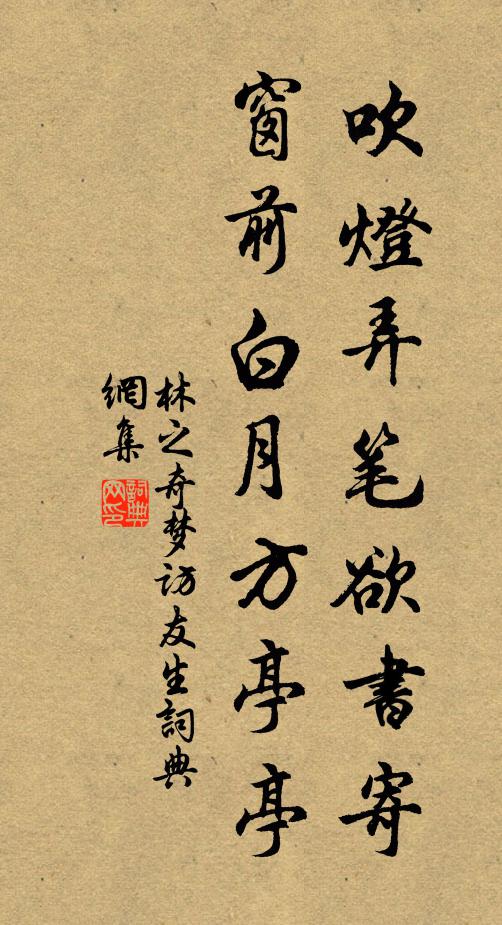 吹燈弄笔欲書寄
窗前白月方亭亭
林之奇梦访友生詞典
網集
詞典
网印